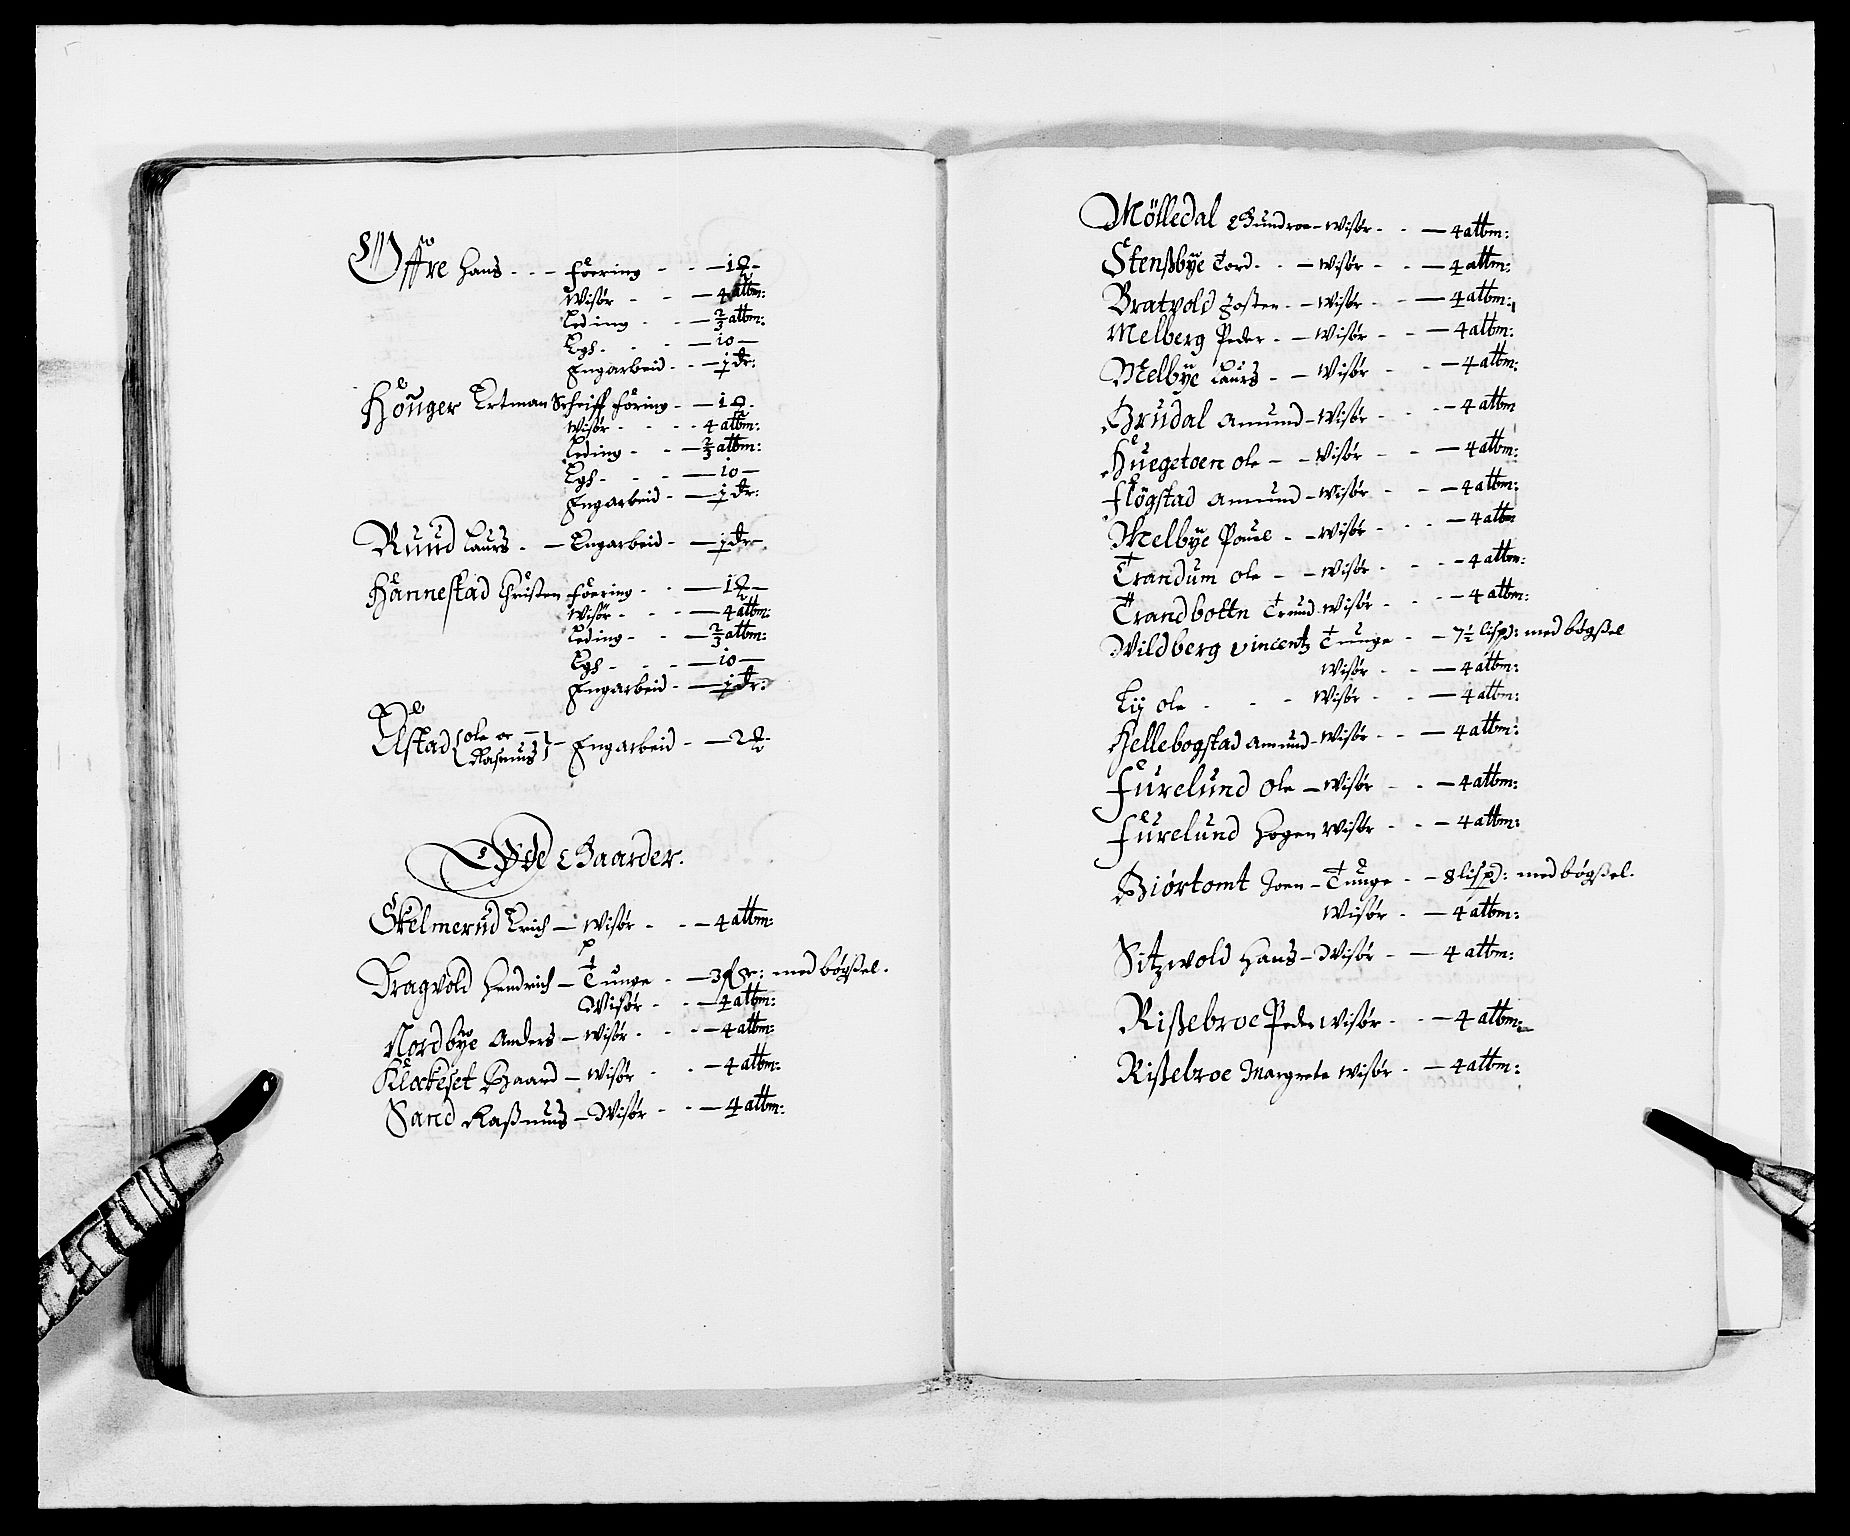 Offre Hans - - - Foering - - - 1 ℔
Wisør - - - 4 attm:
Leding - - - 2/3 attm:
Lgh - - - 10 —
Engarbeid - - 1 dr:
Houger Ertman Schriff Foring - - 1 ℔
Wisør - - - 4 attm:
Leding - - - 2/3 attm:
Lgh - - - 10 —
Engarbeid - - 1 dr:
Ruud Laurs - - Engarbeid - - 1 dr
Hannestad Christen Foering - - - 1 ℔
Wisør - - - 4 attm:
Leding - - - 2/3 attm:
Lgh - - - 10 —
Engarbeid - - 1 dr:
Ulstad {Ole oc - Rasmus} - Engarbeid - - 2 ℔
Øde Gaarder.
Skelmerud Erich - Wisør - - - 4 attm:
Dragvold Hendrich - Tunge - - 3 med bøgßel.
Wisør - - - 4 attm:
Nordbÿe Anders - Wisør - - - 4 attm:
Klockeset Gaard - Wisør - - - 4 attm:
Sand Raßmus - Wisør - - - 4 attm:
Mölledal Gundroe - Wisør - - - 4 attm:
Stenßbÿe Tord - - - Wisør - - - 4 attm:
Bratvold Josten - - Wisør - - - 4 attm:
Melberg Peder - - Wisør - - - 4 attm:
Melbÿe Laurs - - Wisør - - - 4 attm:
Brudal Amund - Wisør - - - 4 attm
Huegetoen Ole - - Wisør - - - 4 attm:
Flögstad Amund - Wisør - - - 4 attm:
Melbÿe Pouel - - Wisør - - - 4 attm
Trandum Ole - - Wisør - - - 4 attm:
Trandbottn Trund Wisør - - - 4 attm:
Wildberg Vincentz Tunge - - 7½ lispd: med bøgßel
Wisør - - - 4 attm:
Lÿ Ole - - - Wisør - - - 4 attm:
Hellebogstad Amund - Wisør - - - 4 attm:
Furelund Ole - Wisør - - - 4 attm:
Furelund Hogen Wisør - - - 4 attm:
Biörtomt Joen - Tunge - - 8 lispd: med bøgßel.
Wisør - - 4 attm:
Sitzwold Hans - Wisør - - 4 attm:
Rißebroe Peder Wisør - - - 4 attm:
Rißebroe Margrete Wisør - - 4 attm: